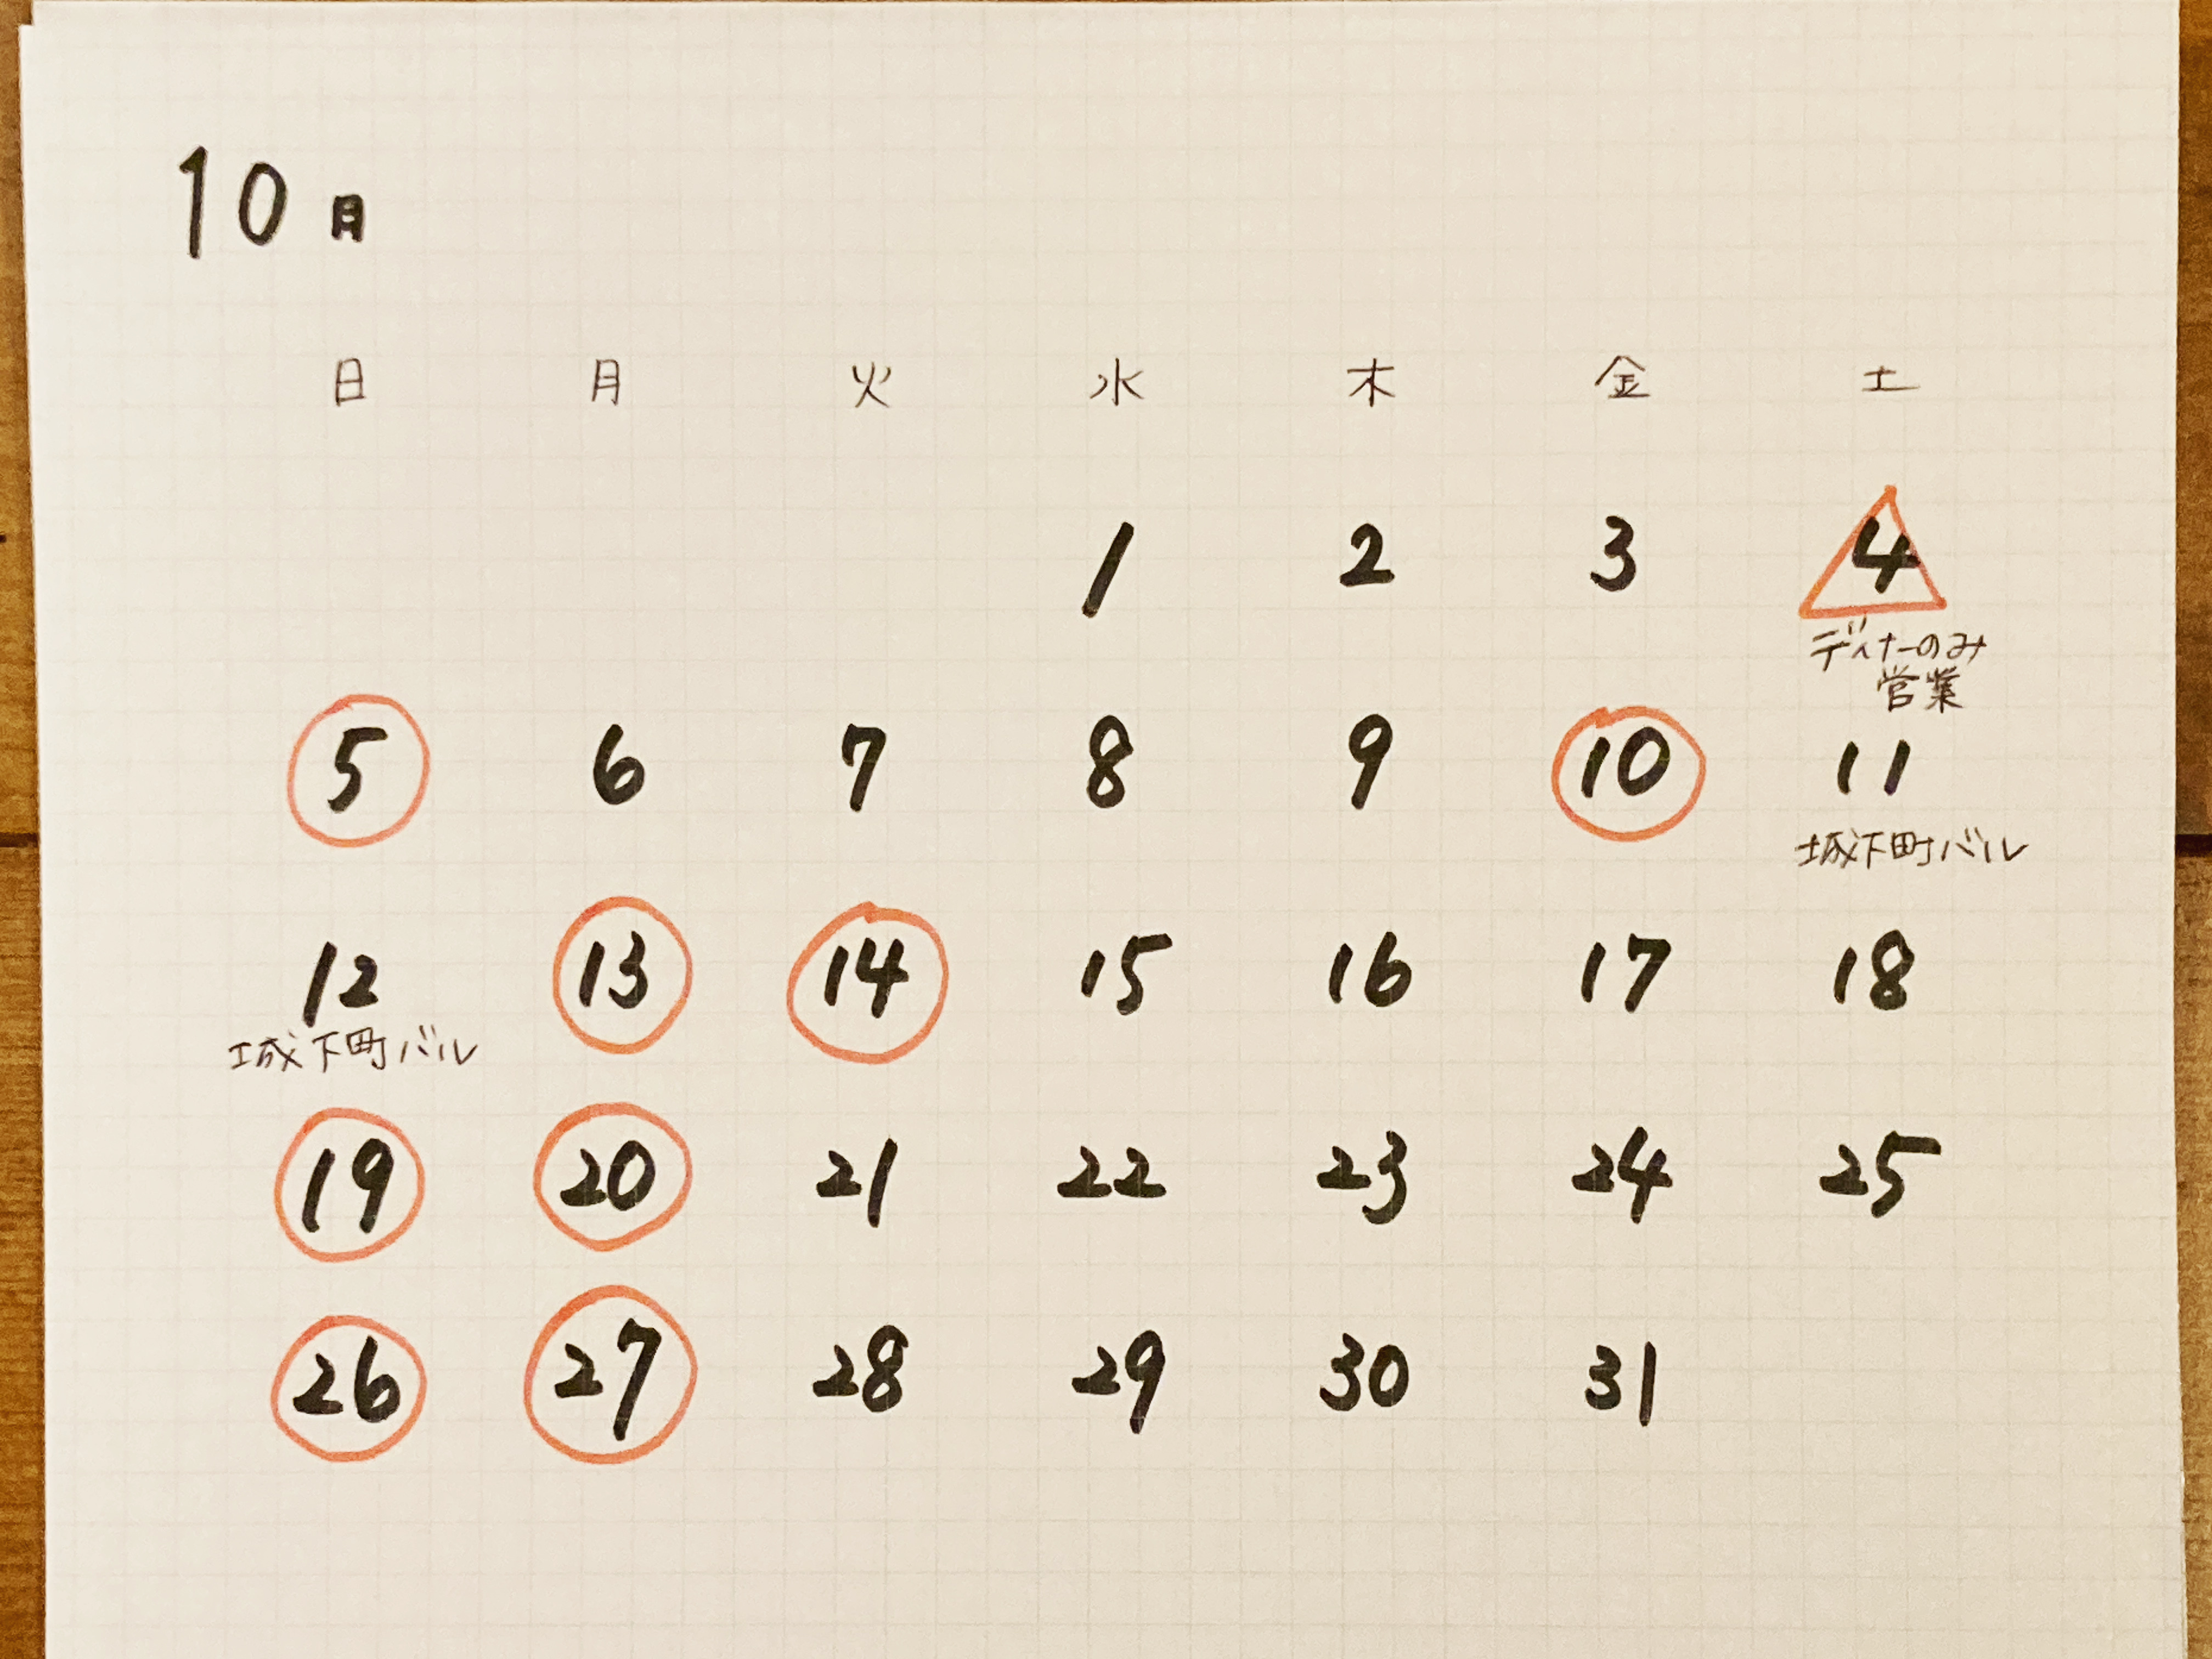 10月
日 月 火 水 木 金 土
1 2 3 4
ディナーのみ
営業
5 6 7 8 9 10 11
城下町バル
12 13 14 15 16 17 18
城下町バル
19 20 21 22 23 24 25
26 27 28 29 30 31